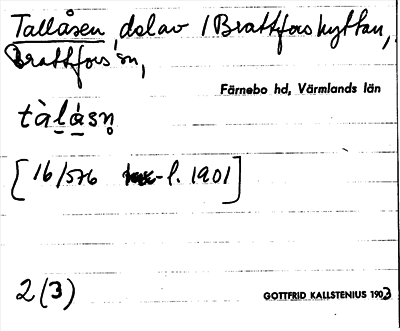 Tallåsen, dsl av 1 Brattforshyttan,
Brattfors sn,
Färnebo hd, Värmlands län
tàlåsn̥
[16/576 l. 1901]
2 (3)
GOTTFRID KALLSTENIUS 1903